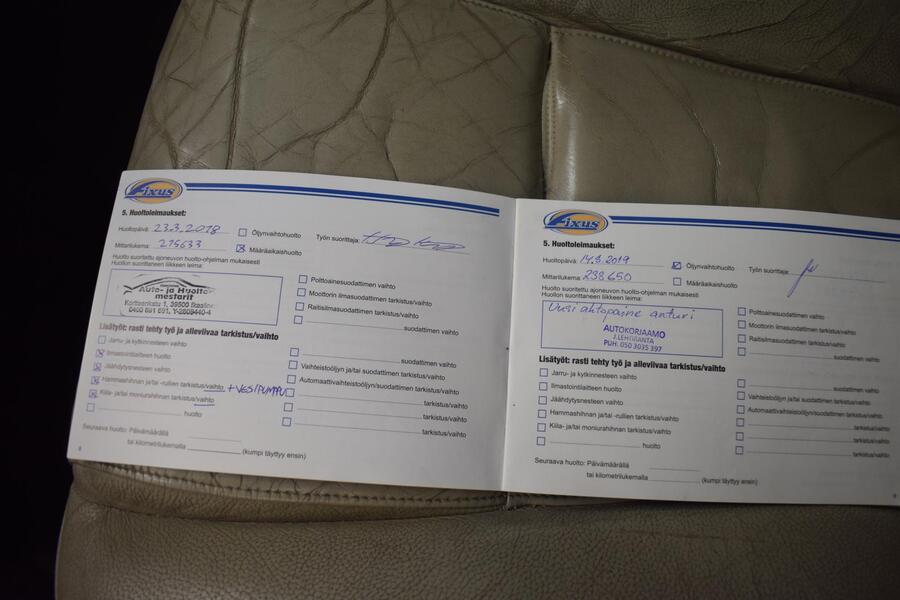 Fixus
5. Huoltoleimaukset:
Huoltopäivä: 23.3.2018
Öljynvaihtohuolto
Mittarilukema: 215633
Määräaikaishuolto
Työn suorittaja:
Huolto suoritettu ajoneuvon huolto-ohjelman mukaisesti
Huollon suorittaneen liikkeen leima:
Auto- ja Huolto-
mestarit
Korttesenkatu 1, 39500 Ikaalinen
0400 691 691, Y-2809440-4
Polttoainesuodattimen vaihto
Moottorin ilmasuodattimen tarkistus/vaihto
Raitisilmasuodattimen tarkistus/vaihto
suodattimen vaihto
Lisätyöt: rasti tehty työ ja alleviivaa tarkistus/vaihto
Jarru- ja kytkinnesteen vaihto
Ilmastointilaitteen huolto
Jäähdytysnesteen vaihto
Hammashihnan ja/tai -rullien tarkistus/vaihto + VESIPUMPPU
Kiila- ja/tai moniurahihnan tarkistus/vaihto
huolto
suodattimen vaihto
Vaihteistoöljyn/suodattimen tarkistus/vaihto
Automaattivaihteistoöljyn/suodattimen tarkistus/vaihto
tarkistus/vaihto
tarkistus/vaihto
tarkistus/vaihto
Seuraava huolto: Päivämäärällä
tai kilometrilukemalla (kumpi täyttyy ensin)
8
Fixus
5. Huoltoleimaukset:
Huoltopäivä: 14.3.2019
Öljynvaihtohuolto
Mittarilukema: 238650
Määräaikaishuolto
Työn suorittaja:
Huolto suoritettu ajoneuvon huolto-ohjelman mukaisesti
Huollon suorittaneen liikkeen leima:
Uusi ahtopaine anturi
AUTOKORJAAMO
J.LEHTIRANTA
PUH. 050 3035 397
Polttoainesuodattimen vaihto
Moottorin ilmasuodattimen tarkistus/vaihto
Raitisilmasuodattimen tarkistus/vaihto
suodattimen vaihto
Lisätyöt: rasti tehty työ ja alleviivaa tarkistus/vaihto
Jarru- ja kytkinnesteen vaihto
Ilmastointilaitteen huolto
Jäähdytysnesteen vaihto
Hammashihnan ja/tai -rullien tarkistus/vaihto
Kiila- ja/tai moniurahihnan tarkistus/vaihto
huolto
suodattimen vaihto
Vaihteistoöljyn/suodattimen tarkistus/vaihto
Automaattivaihteistoöljyn/suodattimen tarkistus/vaihto
tarkistus/vaihto
tarkistus/vaihto
tarkistus/vaihto
Seuraava huolto: Päivämäärällä
tai kilometrilukemalla (kumpi täyttyy ensin)